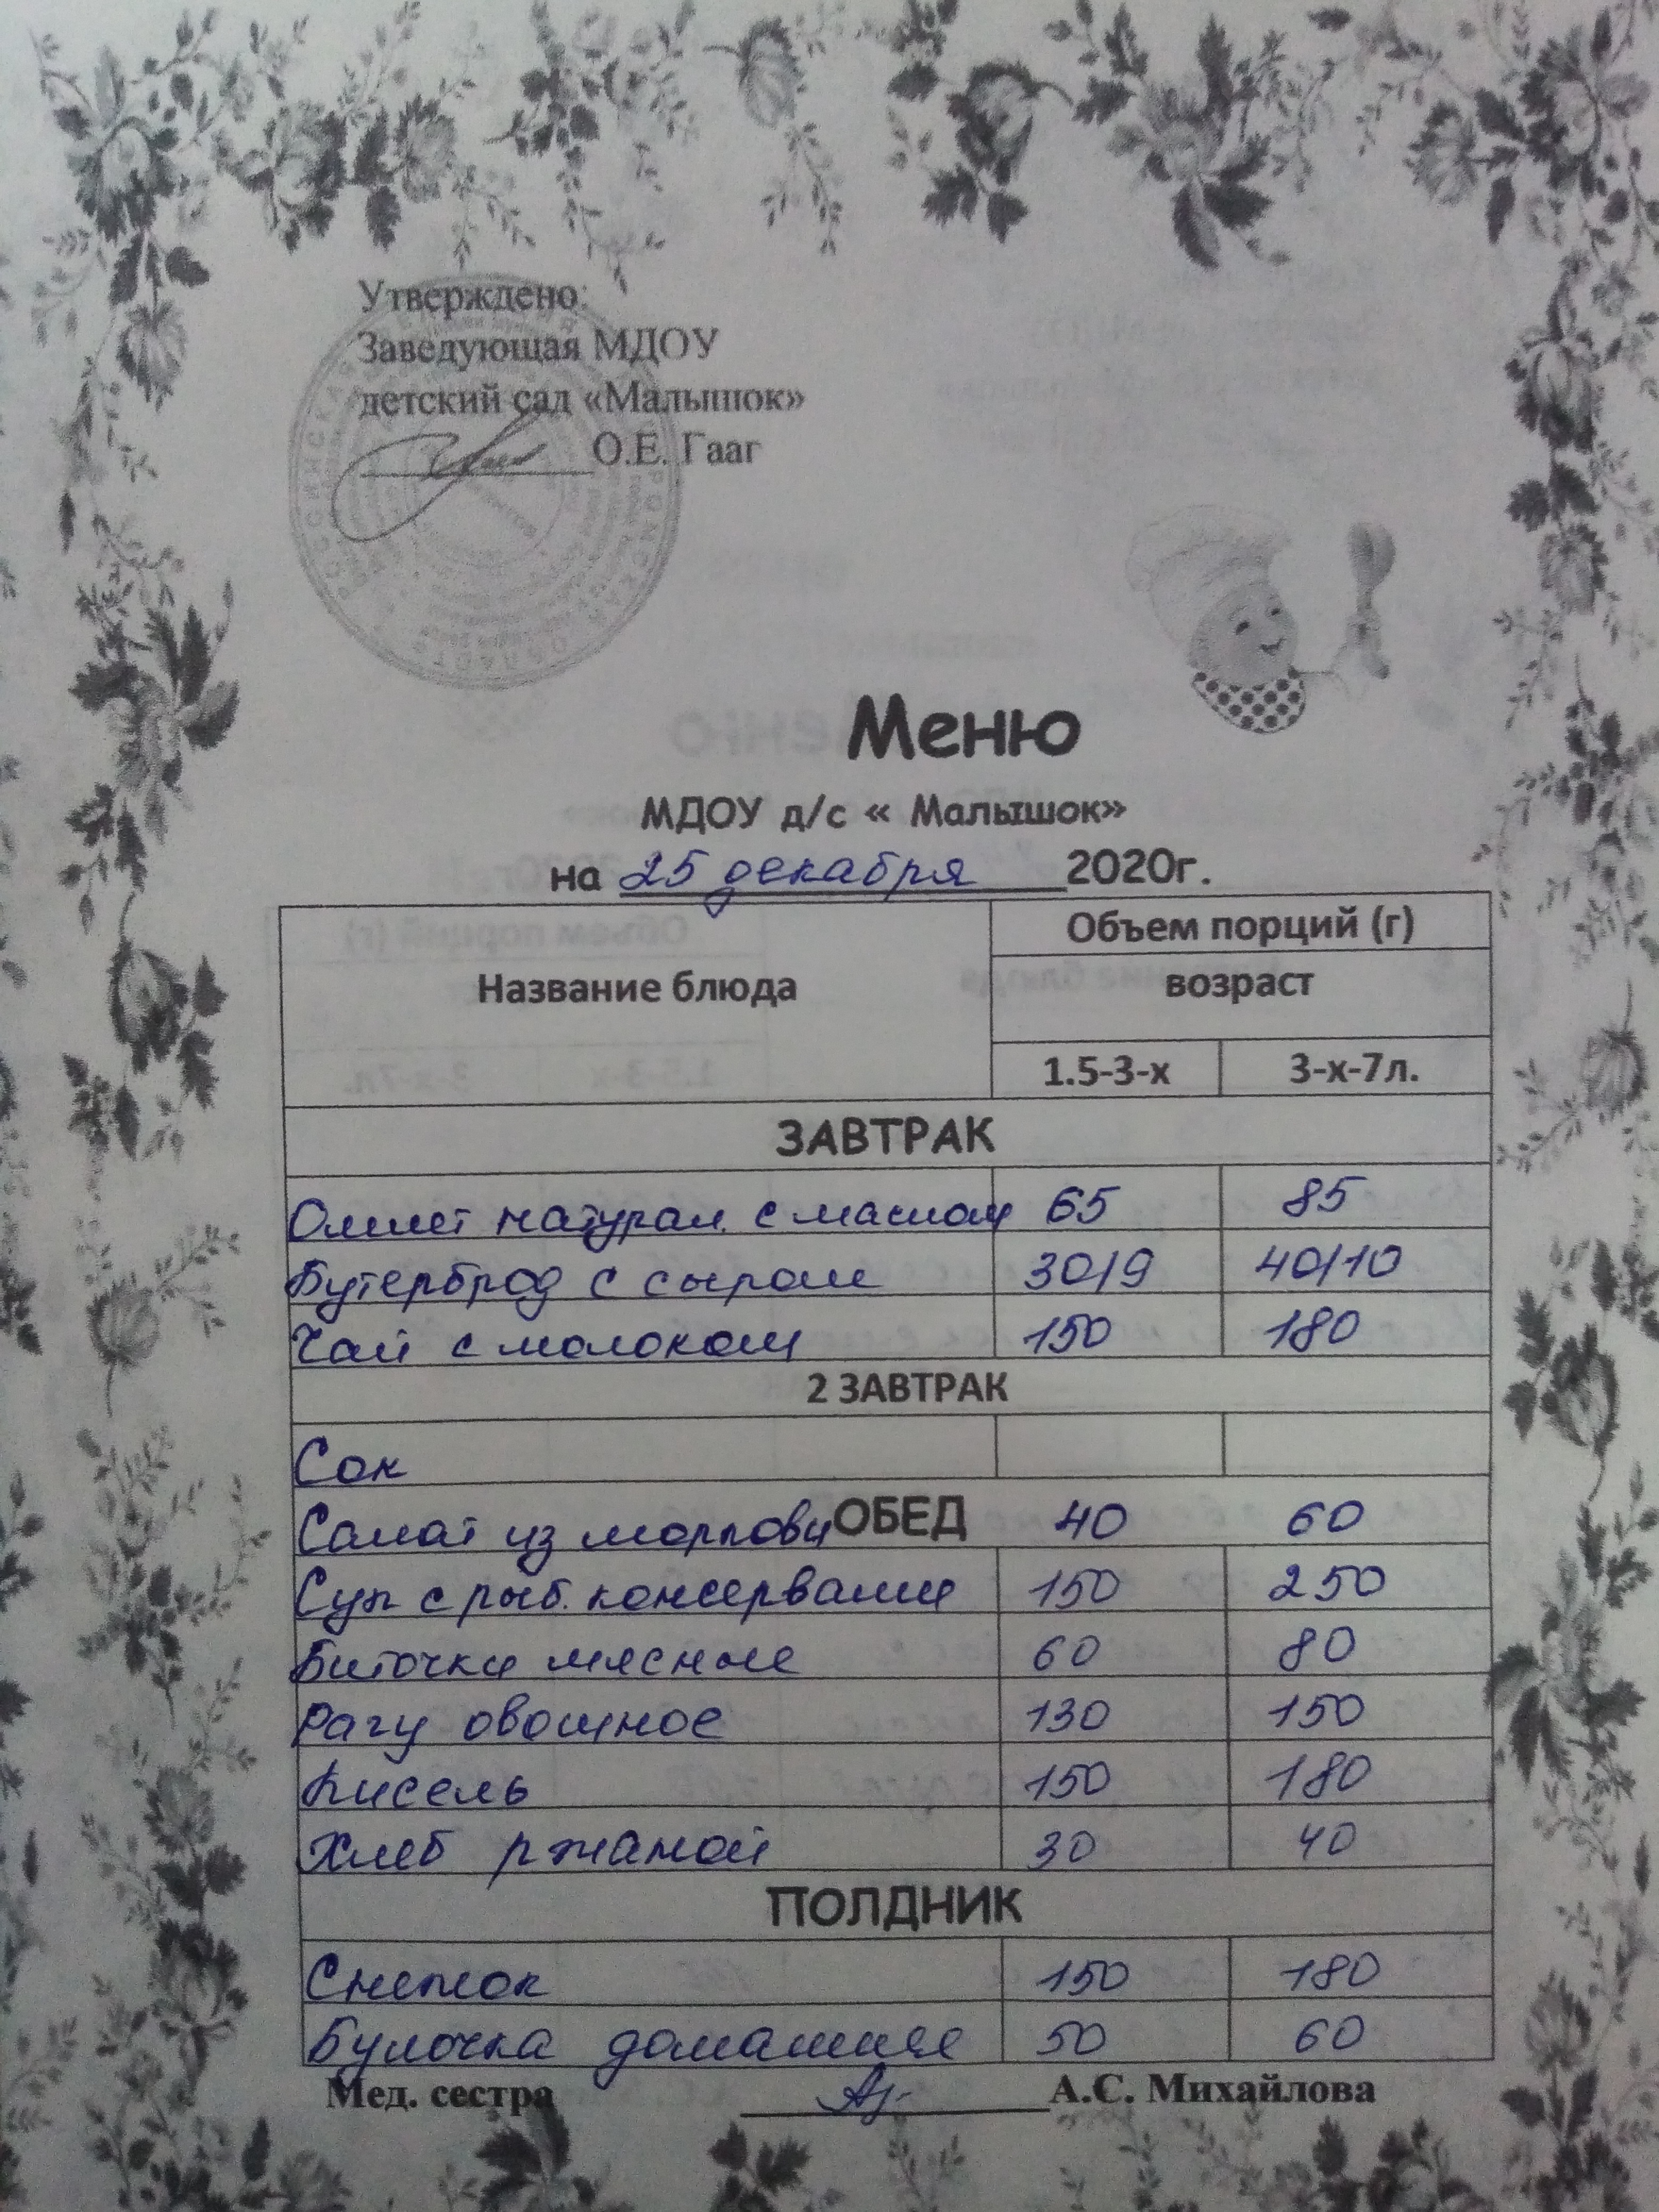 Утверждено:
Заведующая МДОУ
детский сад «Малышок»
О.Е. Гааг
Меню
МДОУ д/с « Малышок»
на 25 декабря 2020г.
Объем порций (г)
Название блюда возраст
1.5-3-х 3-х-7л.
ЗАВТРАК
Омлет натурал. с маслом 65 85
Бутерброд с сыром 30/9 40/10
Чай с молоком 150 180
2 ЗАВТРАК
Сок
Салат из моркови ОБЕД 40 60
Суп с рыб. консервами 150 250
Биточки мясные 60 80
Рагу овощное 130 150
Кисель 150 180
Хлеб ржаной 30 40
ПОЛДНИК
Снежок 150 180
Булочка домашняя 50 60
Мед. сестра А.С. Михайлова